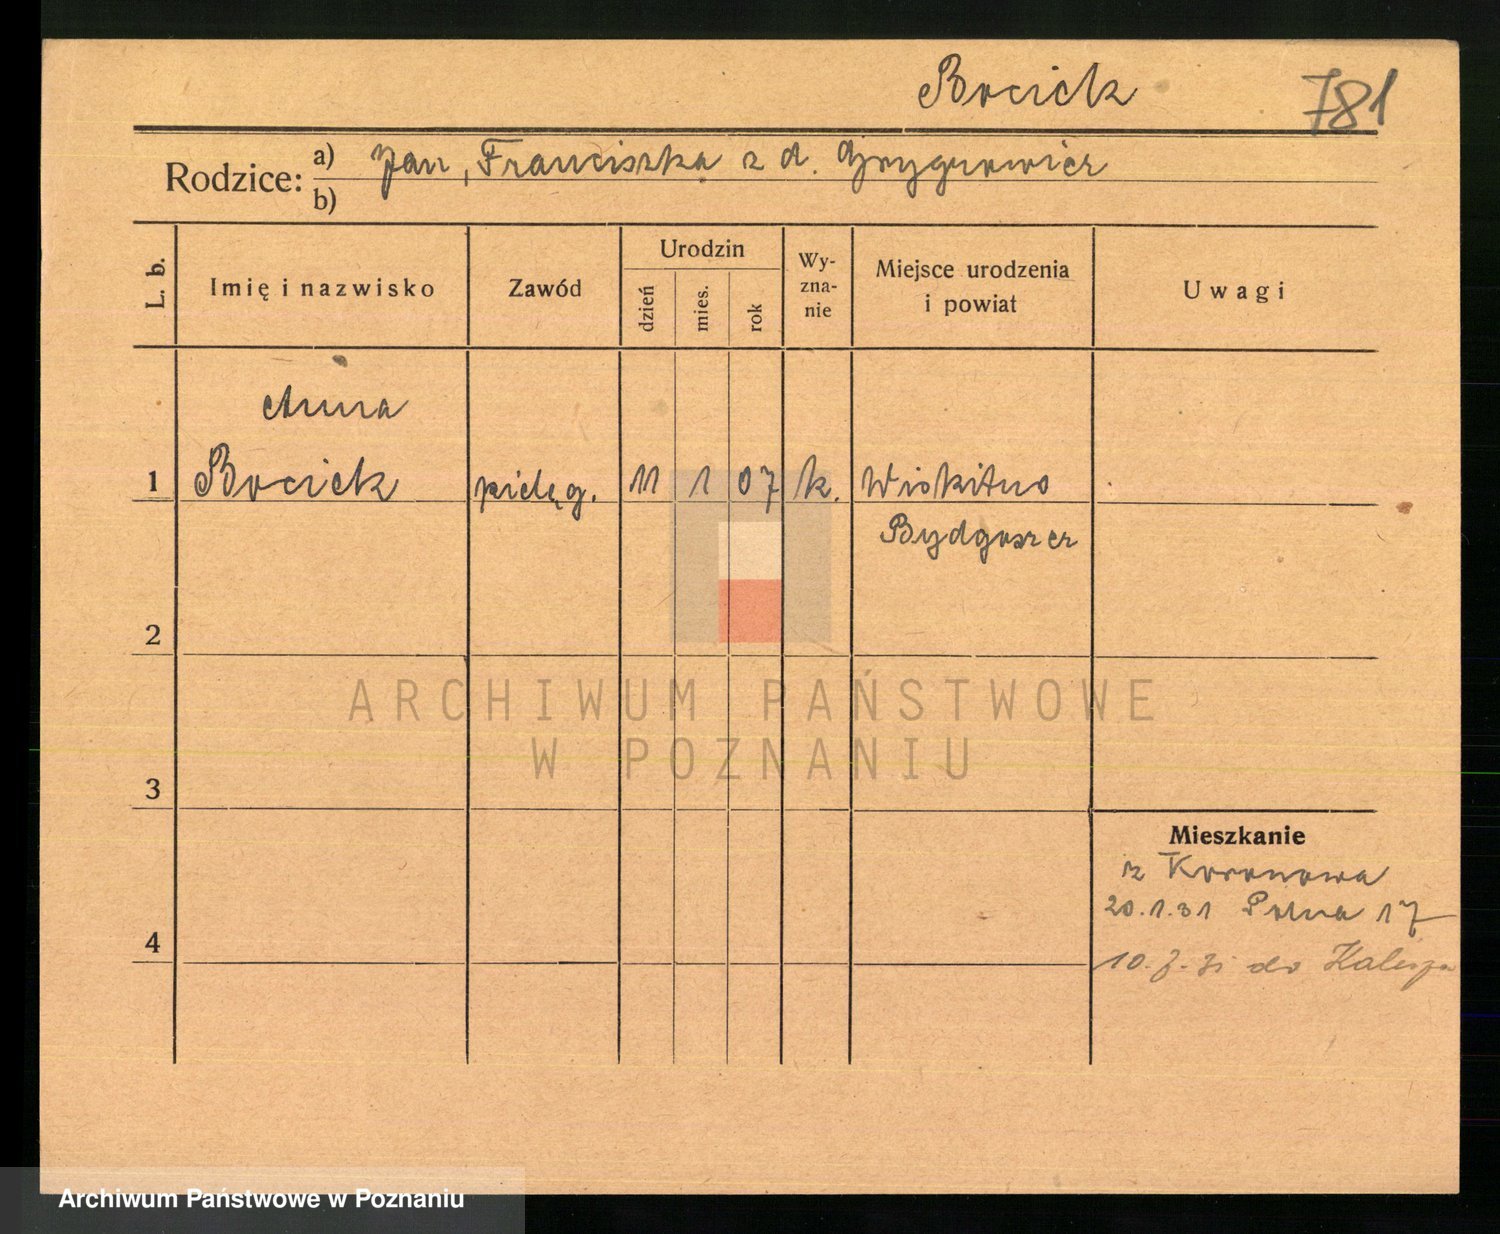 Bociek 781
Rodzice: a) Jan, Franciszka z d. Grygrowicz
b)
L. b. Imię i nazwisko Zawód Urodzin dzień mies. rok Wy-zna-nie Miejsce urodzenia i powiat Uwagi
Anna
1 Bociek pielęg. 11 1 07 k. Wiskitno
Bydgoszcz
2
ARCHIWUM PAŃSTWOWE
W POZNANIU
3
Mieszkanie
z Koronowa
20.1.31 Polna 17
4
10. do Kalisza
Archiwum Państwowe w Poznaniu